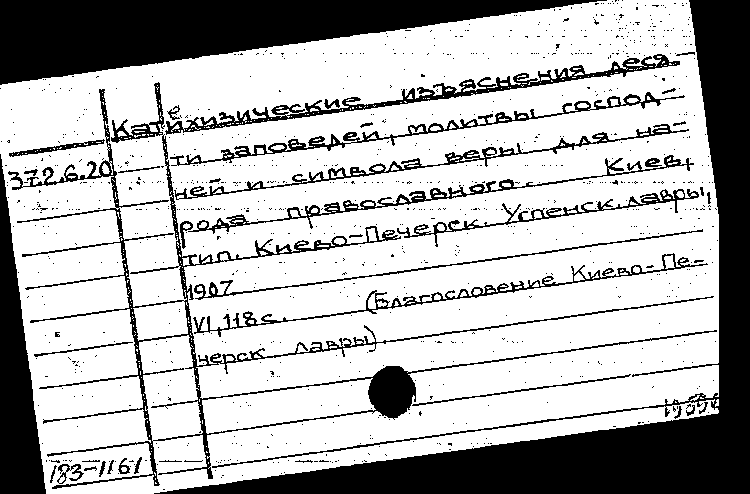 Катехизические изъяснения деся-
ти заповедей, молитвы господ-
37.2.6.20
ней и символа веры для на-
рода православного. Киев,
тип. Киево-Печерск. Успенск. лавры,
1907
VI, 118 с. (Благословение Киево-Пе-
черск лавры).
183-1161